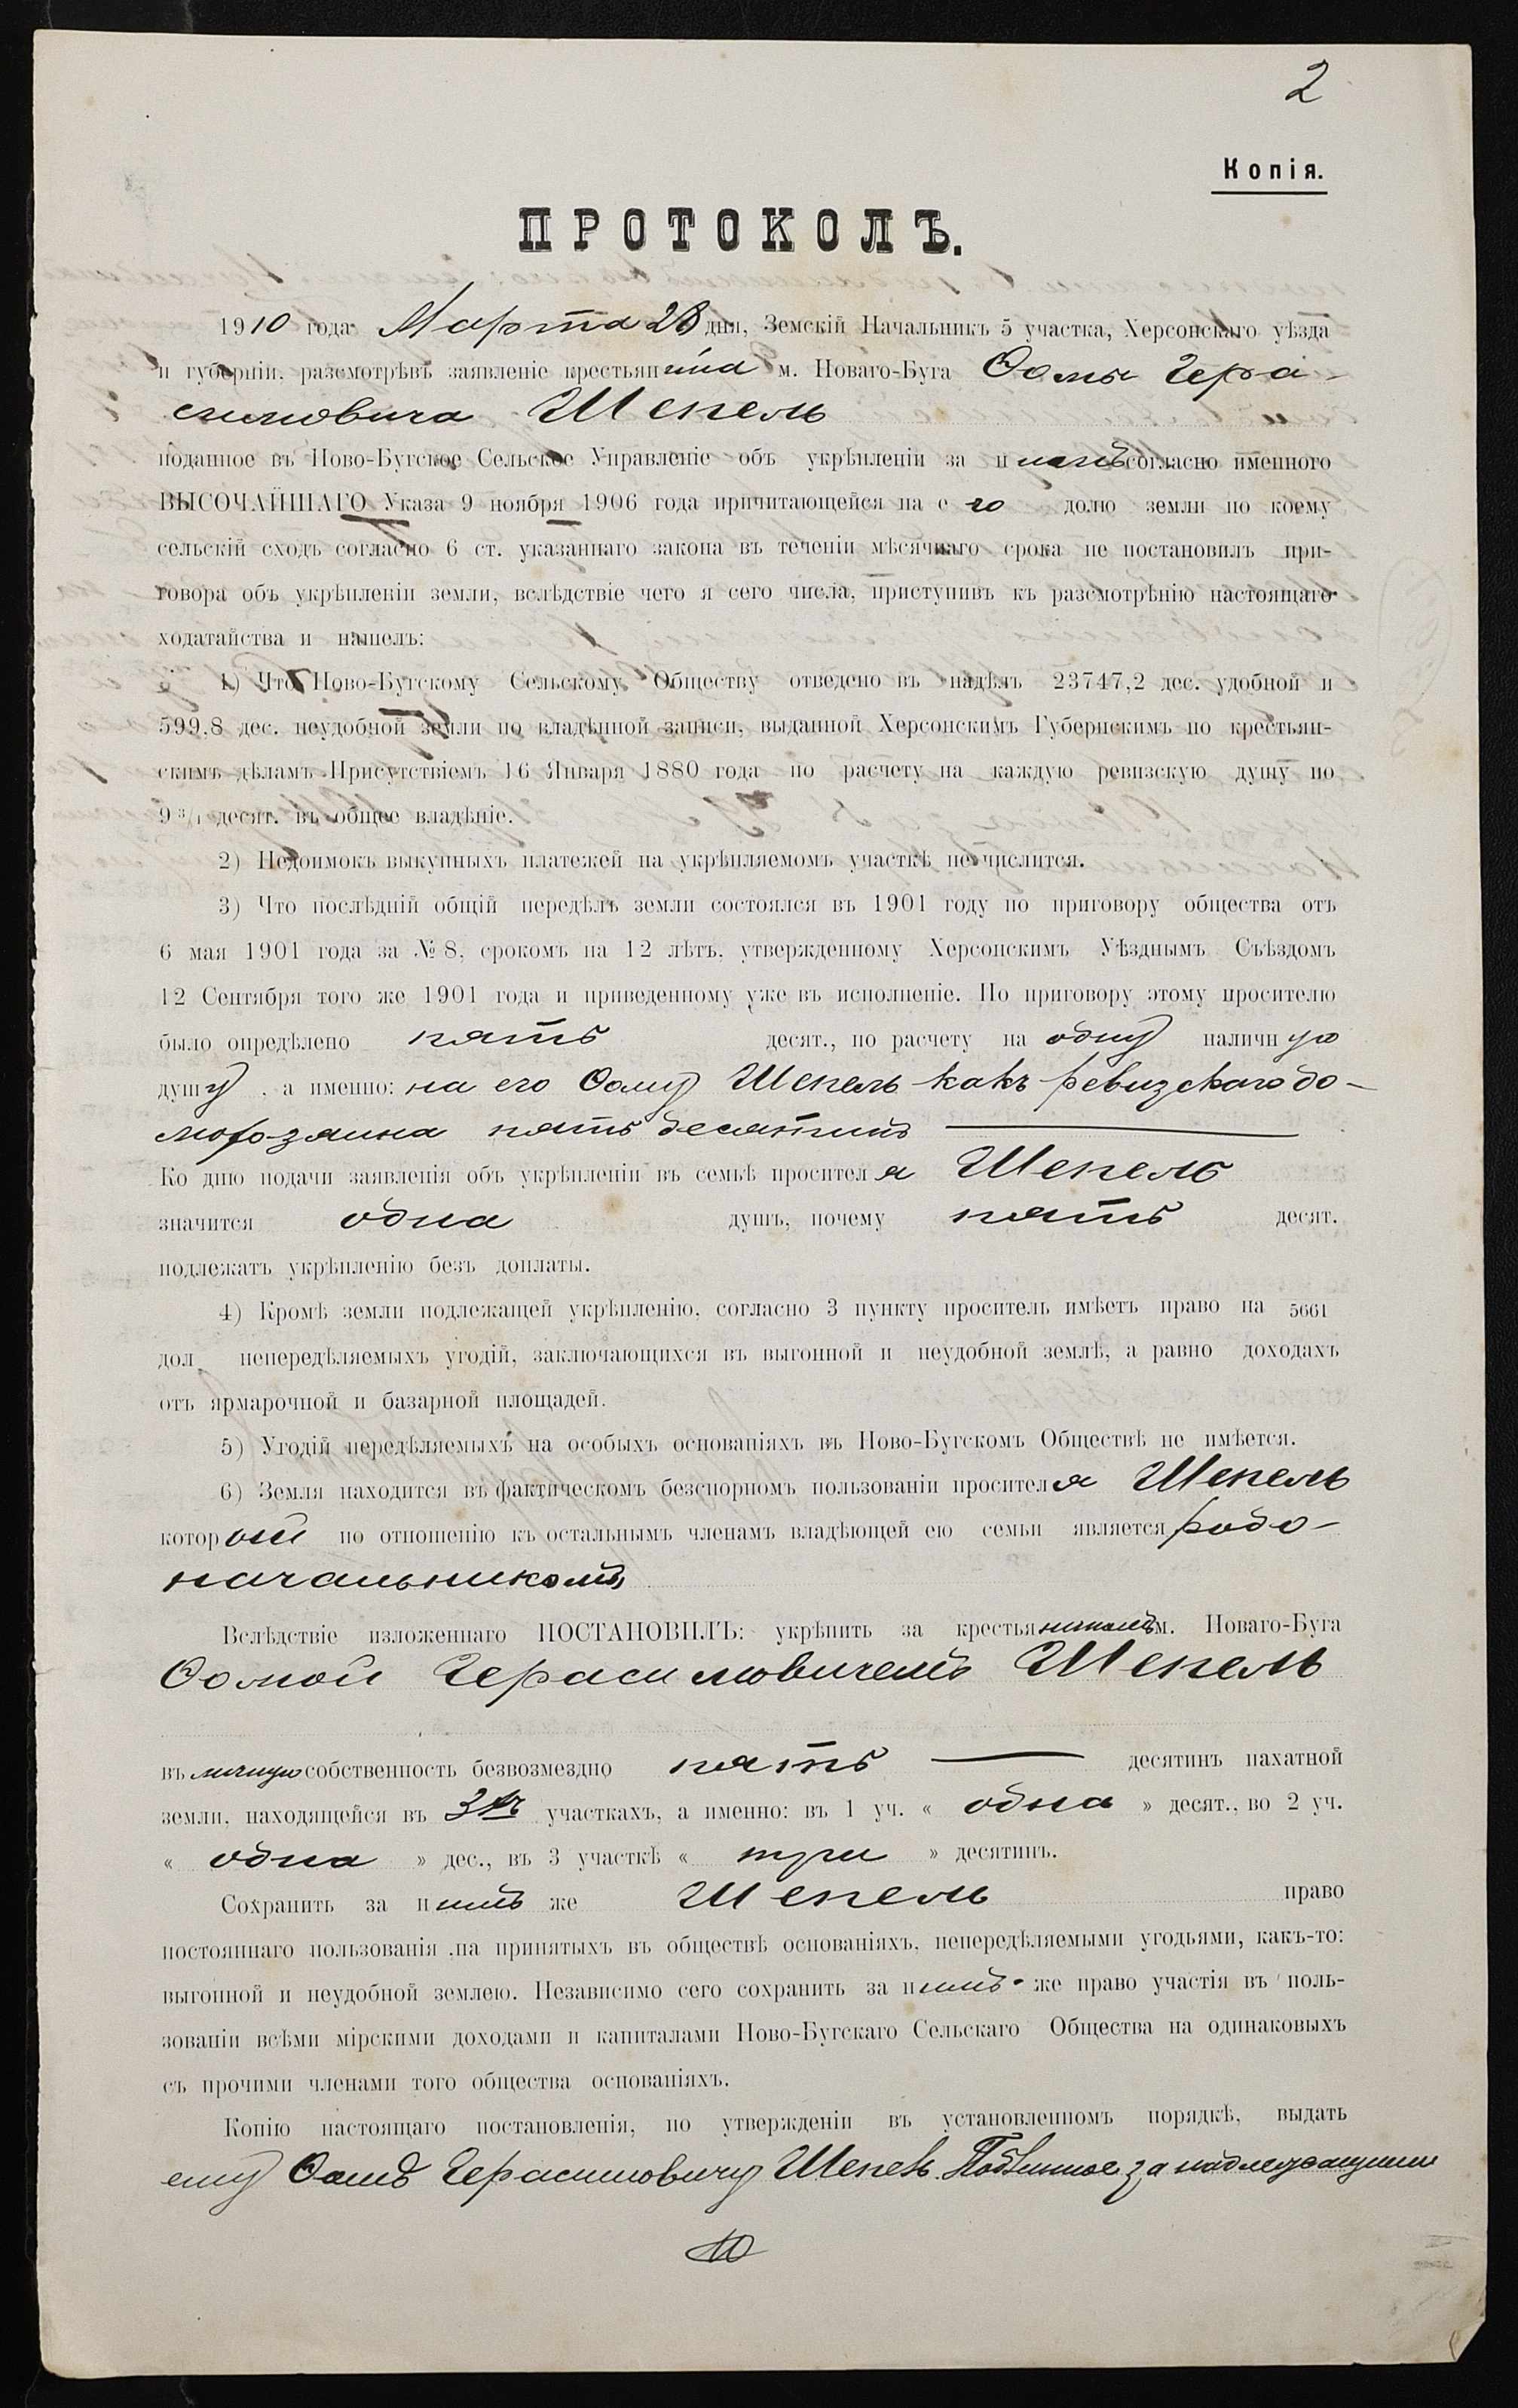 2
Копія.
ПРОТОКОЛЪ.
1910 года Марта 28 дня, Земскій Начальникъ 5 участка, Херсонскаго уѣзда
и губерніи, разсмотрѣвъ заявленіе крестьянина м. Новаго-Буга Ѳомы Гера-
симовича Шепель
поданное въ Ново-Бугское Сельское Управленіе объ укрѣпленіи за нимъ согласно именного
ВЫСОЧАЙШАГО Указа 9 ноября 1906 года причитающейся на его долю земли по коему
сельскій сходъ согласно 6 ст. указаннаго закона въ теченіи мѣсячнаго срока не постановилъ при-
говора объ укрѣпленіи земли, вслѣдствіе чего я сего числа, приступивъ къ разсмотрѣнію настоящаго
ходатайства и нашелъ:
1) Что Ново-Бугскому Сельскому Обществу отведено въ надѣлъ 23747,2 дес. удобной и
599,8 дес. неудобной земли по владѣнной записи, выданной Херсонскимъ Губернскимъ по крестьян-
скимъ дѣламъ Присутствіемъ 16 Января 1880 года по расчету на каждую ревизскую душу по
9 3/4 десят. въ общее владѣніе.
2) Недоимокъ выкупныхъ платежей на укрѣпляемомъ участкѣ не числится.
3) Что послѣдній общій передѣлъ земли состоялся въ 1901 году по приговору общества отъ
6 мая 1901 года за № 8, срокомъ на 12 лѣтъ, утвержденному Херсонскимъ Уѣзднымъ Съѣздомъ
12 Сентября того же 1901 года и приведенному уже въ исполненіе. По приговору этому просителю
было опредѣлено пять десят., по расчету на одну наличную
душу, а именно: на его Ѳому Шепель какъ ревизскаго до-
мохозяина пять десятинъ
Ко дню подачи заявленія объ укрѣпленіи въ семьѣ просителя Шепель
значится одна душъ, почему пять десят.
подлежатъ укрѣпленію безъ доплаты.
4) Кромѣ земли подлежащей укрѣпленію, согласно 3 пункту проситель имѣетъ право на 5661
дол. непередѣляемыхъ угодій, заключающихся въ выгонной и неудобной землѣ, а равно доходахъ
отъ ярмарочной и базарной площадей.
5) Угодій передѣляемыхъ на особыхъ основаніяхъ въ Ново-Бугскомъ Обществѣ не имѣется.
6) Земля находится въ фактическомъ безспорномъ пользованіи просителя Шепель
который по отношенію къ остальнымъ членамъ владѣющей ею семьи является родо-
начальникомъ
Вслѣдствіе изложеннаго ПОСТАНОВИЛЪ: укрѣпить за крестьяниномъ м. Новаго-Буга
Ѳомой Герасимовичемъ Шепель
въ личную собственность безвозмездно пять десятинъ пахатной
земли, находящейся въ 3хъ участкахъ, а именно: въ 1 уч. « одна » десят., во 2 уч.
« одна » дес., въ 3 участкѣ « три » десятинъ.
Сохранить за нимъ же Шепель право
постояннаго пользованія на принятыхъ въ обществѣ основаніяхъ, непередѣляемыми угодьями, какъ-то:
выгонной и неудобной землею. Независимо сего сохранить за нимъ же право участія въ поль-
зованіи всѣми мірскими доходами и капиталами Ново-Бугскаго Сельскаго Общества на одинаковыхъ
съ прочими членами того общества основаніяхъ.
Копію настоящаго постановленія, по утвержденіи въ установленномъ порядкѣ, выдать
ему Ѳомѣ Герасимовичу Шепель. Подлинное за надлежащими